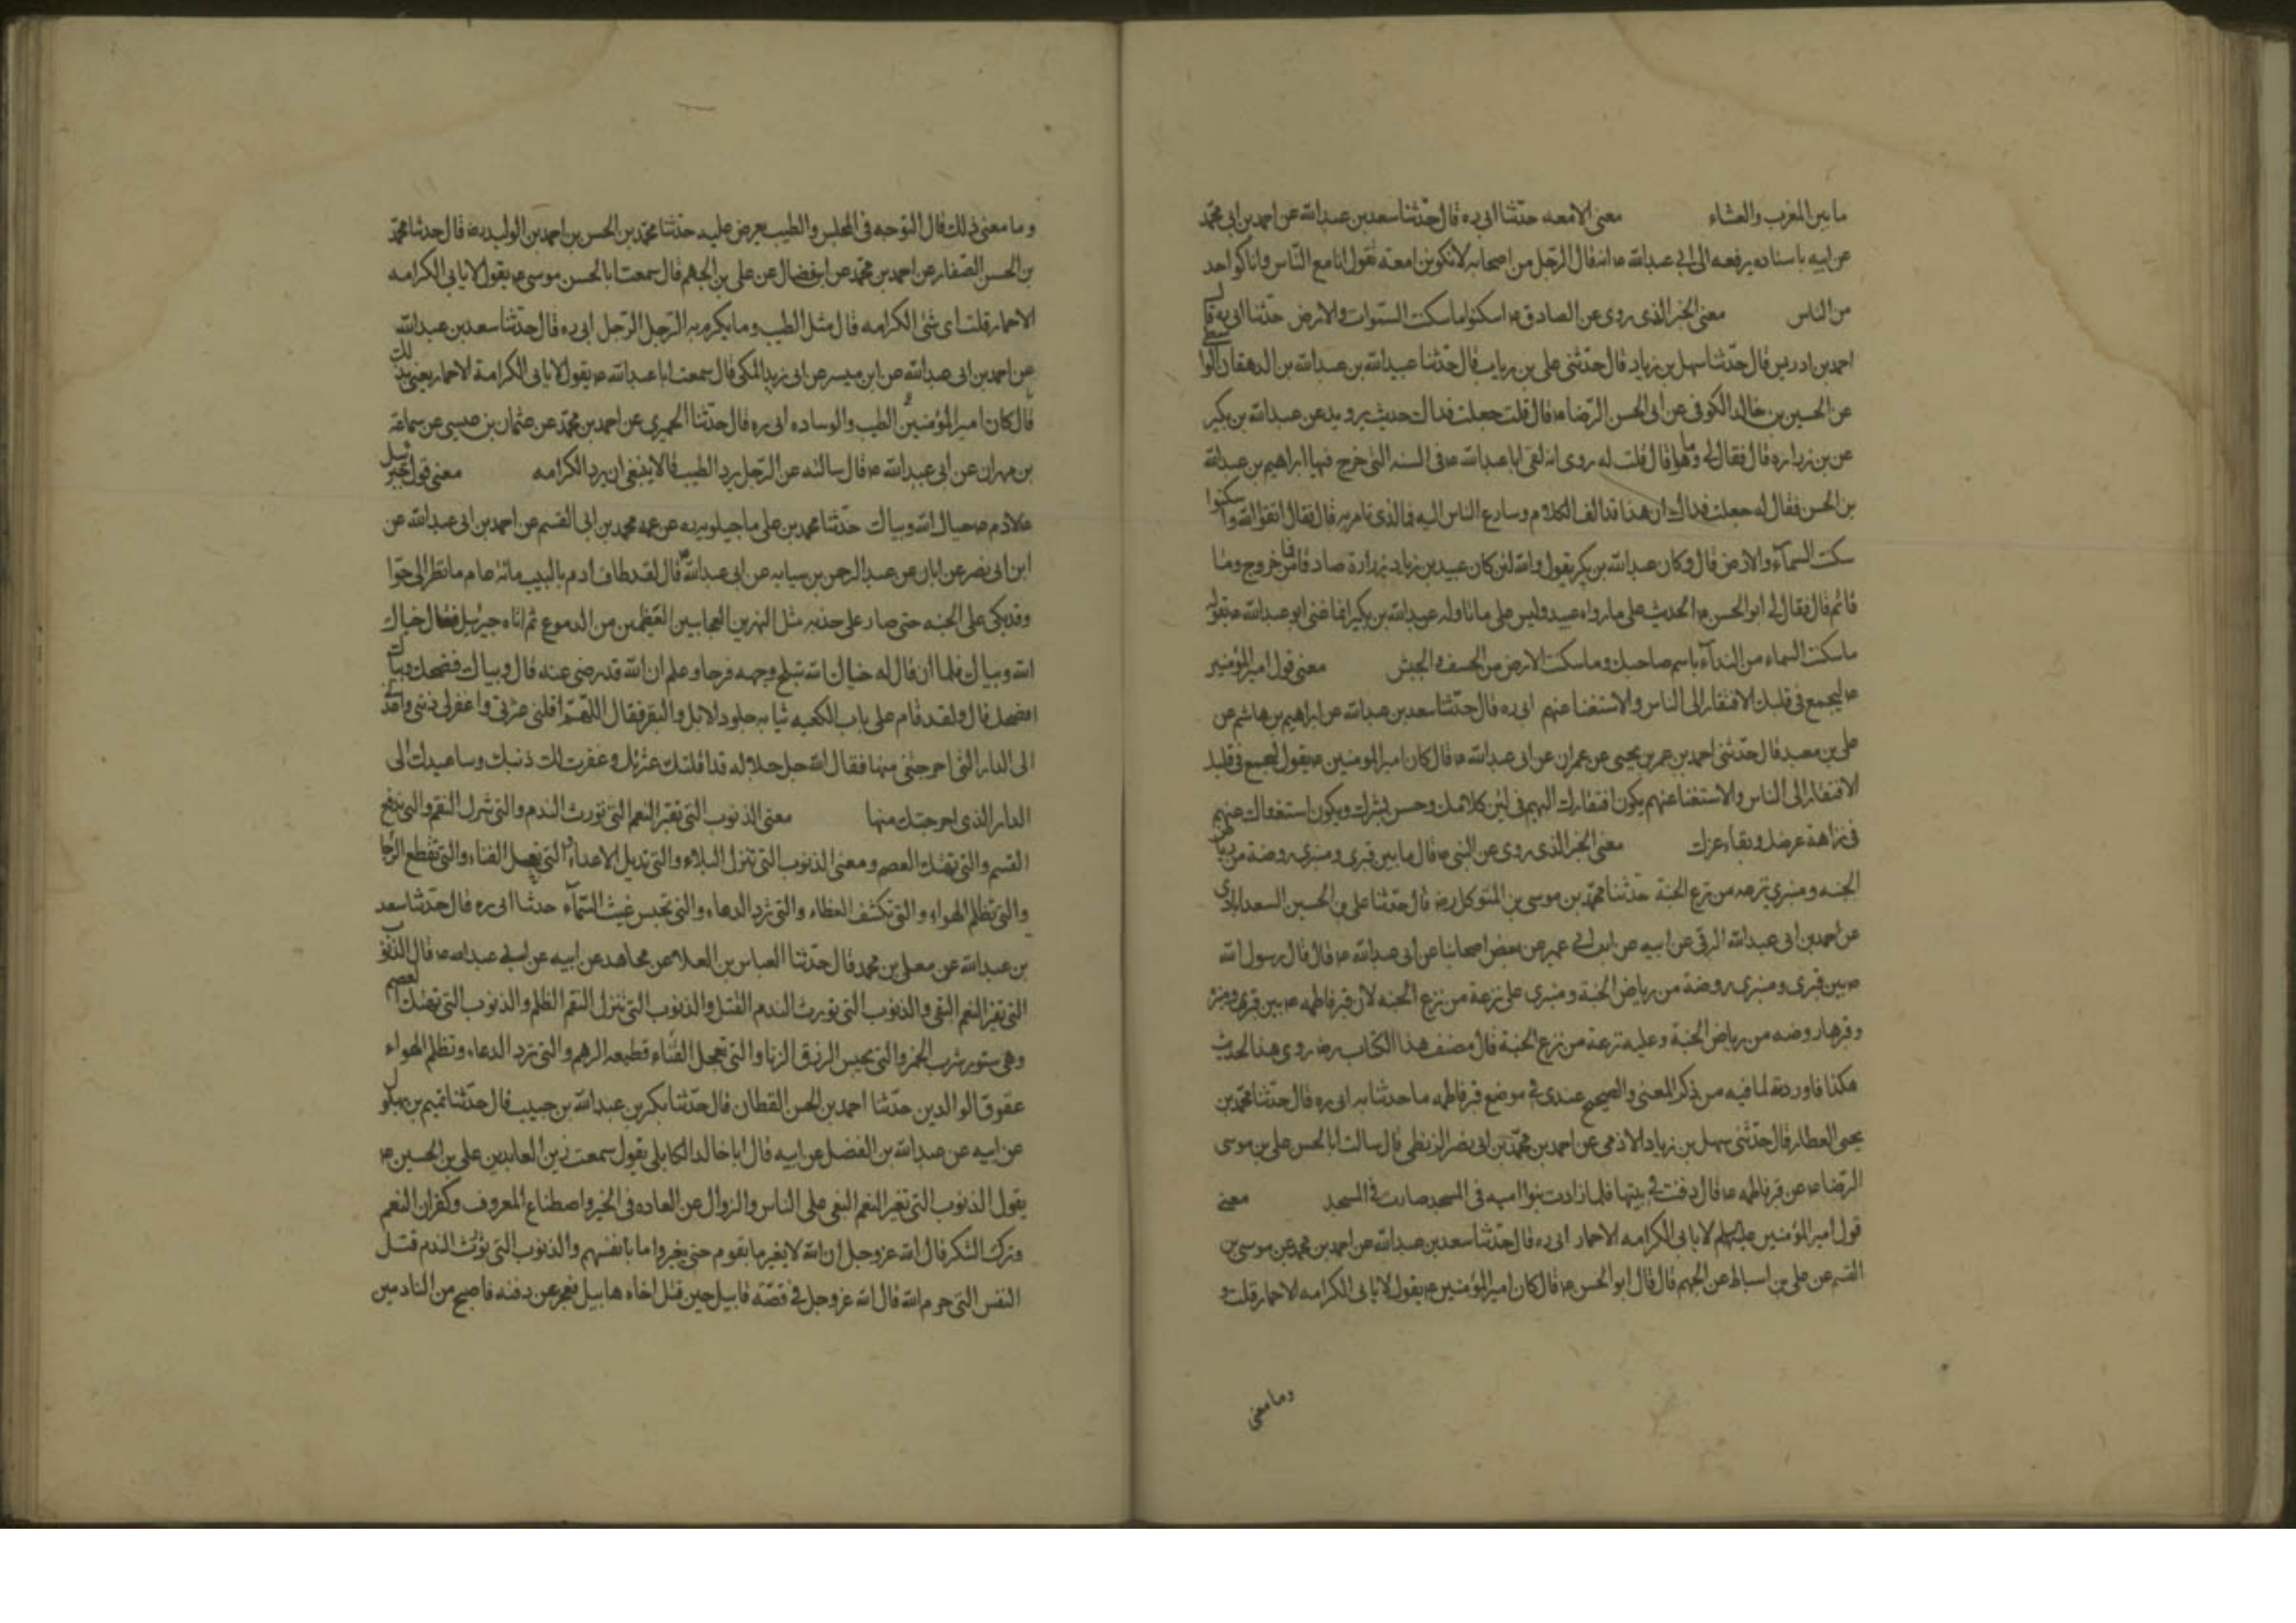 ما بين المغرب والعشاء معنى الامعه حدثنا ابى ره قال حدثنا سعد بن عبدالله عن احمد بن ابى محمد
عن ابيه باسناده يرفعه الى ابى عبدالله ع انه قال لرجل من اصحابه لا تكونن امعة تقول انا مع الناس وانا كواحد
من الناس معنى الخبر الذى روى عن الصادق ع اسكنوا ما سكنت السموات والارض حدثنا ابى ره قال
احمد بن ادريس قال حدثنا سهل بن زياد قال حدثنى على بن رياب قال حدثنا عبيدالله بن عبدالله بن الدهقان الواسطى
عن الحسين بن خالد الكوفى عن ابى الحسن الرضا ع قال قلت جعلت فداك حديث يرويه عن عبدالله بن بكير
عن بن زراره قال فقال لى وما هو قال قلت له روى انه لقى ابا عبدالله ع فى السنه التى خرج فيها ابراهيم بن عبدالله
بن الحسن فقال له جعلت فداك ان هذا قد الف الكلام وسارع الناس اليه فما الذى تامر به قال فقال اتقوا الله واسكنوا ما
سكنت السمآء والارض قال وكان عبدالله بن بكير يقول والله لئن كان عبيد بن زراره صادقا فما من خروج وما من
قائم قال فقال لى ابو الحسن ع الحديث على ما رواه عبيد وليس على ما تاوله عبدالله بن بكير انما عنى ابو عبدالله ع بقوله
ما سكنت السماء من النداء باسم صاحبك وما سكنت الارض من الخسف بالجيش معنى قول امير المؤمنين
ع ليجمع فى قلبك الافتقار الى الناس والاستغنا عنهم ابى ره قال حدثنا سعد بن عبدالله عن ابراهيم بن هاشم عن
على بن معبد قال حدثنى احمد بن عمر بن يحيى عن عمران عن ابى عبدالله ع قال كان امير المومنين ع يقول ليجمع فى قلبك
الافتقار الى الناس والاستغنا عنهم يكون افتقارك اليهم فى لين كلامك وحسن بشرك ويكون استغناؤك عنهم
فى نزاهة عرضك وبقاء عزك معنى الخبر الذى روى عن النبى ع قال ما بين قبرى ومنبرى روضة من رياض
الجنه ومنبرى ترعه من ترع الجنة حدثنا محمد بن موسى بن المتوكل رض قال حدثنا على بن الحسين السعدابادى
عن احمد بن ابى عبدالله البرقى عن ابيه عن ابن ابى عمير عن بعض اصحابنا عن ابى عبدالله ع قال قال رسول الله
ص بين قبرى ومنبرى روضة من رياض الجنة ومنبرى على ترعة من ترع الجنه لان قبر فاطمه ع بين قبره ومنبره
وقبرها روضه من رياض الجنة وعليه ترعة من ترع الجنة قال مصنف هذا الكتاب رض روى هذا الحديث
هكذا فاوردته لما فيه من ذكر المعنى والصحيح عندى فى موضع قبر فاطمه ما حدثنا به ابى ره قال حدثنا محمد بن
يحيى العطار قال حدثنى سهل بن زياد الادمى عن احمد بن محمد بن ابى نصر البزنطى قال سالت ابا الحسن على بن موسى
الرضا ع عن قبر فاطمه ع قال دفنت فى بيتها فلما زادت بنوا اميه فى المسجد صارت فى المسجد معنى
قول امير المؤمنين عليه السلم لا يابى الكرامه الا حمار ابى ره قال حدثنا سعد بن عبدالله عن احمد بن محمد عن موسى بن
القسم عن على بن اسباط عن الجهم قال قال ابو الحسن ع قال كان امير المؤمنين ع يقول لا يابى الكرامه الا حمار قلت
وما معنى
وما معنى ذلك قال التوحبه فى المجلس والطيب يعرض عليه حدثنا محمد بن الحسن بن احمد بن الوليد رض قال حدثنا محمد
بن الحسن الصفار عن احمد بن محمد عن ابن فضال عن على بن الجهم قال سمعت ابا الحسن موسى ع يقول لا يابى الكرامه
الا حمار قلت اى شئ الكرامه قال مثل الطيب وما يكرم به الرجل الرجل ابى ره قال حدثنا سعد بن عبدالله
عن احمد بن ابى عبدالله عن ابن ميسر عن ابى زيد المكى قال سمعت ابا عبدالله ع يقول لا يابى الكرامة الا حمار يعنى بذلك
قال كان امير المؤمنين الطيب والوساده ابى ره قال حدثنا الحميرى عن احمد بن محمد عن عثمان بن عيسى عن سماعة
بن مهران عن ابى عبدالله ع قال سالته عن الرجل يرد الطيب قال لا ينبغى ان يرد الكرامه معنى قول جبرئيل
علادم ع حياك الله وبياك حدثنا محمد بن على ماجيلويه ره عن عمه محمد بن ابى القسم عن احمد بن ابى عبدالله عن
ابن ابى نصر عن ابان عن عبد الرحمن بن سيابه عن ابى عبدالله ع قال لقد طاف ادم بالبيت مائة عام ما نظر الى حوا
وقد بكى على الجنه حتى صار على خديه مثل النهرين العجاجين العظيمين من الدموع ثم اتاه جبرئيل فقال حياك
الله وبياك فلما ان قال له حياك الله تبلج وجهه فرحا وعلم ان الله قد رضى عنه قال وبياك فضحك وبياك
اضحك قال ولقد قام على باب الكعبه ثيابه جلود الابل والبقر فقال اللهم اقلنى عثرتى واغفر لى ذنبى واعدنى
الى الدار التى اخرجتنى منها فقال الله جل جلاله قد اقلتك عثرتك وغفرت لك ذنبك وساعيدك الى
الدار الذى اخرجتك منها معنى الذنوب التى تغير النعم التى تورث الندم والتى تنزل النقم والتى تدفع
القسم والتى تهتك العصم ومعنى الذنوب التى تنزل البلاء والتى تديل الاعداء والتى تعجل الفناء والتى تقطع الرجا
والتى تظلم الهواء والتى تكشف الغطاء والتى ترد الدعاء والتى تحبس غيث السمآء حدثنا ابى ره قال حدثنا سعد
بن عبدالله عن معلى بن محمد قال حدثنا العباس بن العلا عن مجاهد عن ابيه عن ابى عبدالله ع قال الذنوب
التى تغير النعم البغى والذنوب التى تورث الندم القتل والذنوب التى تنزل النقم الظلم والذنوب التى تهتك العصم
وهى ستور شرب الخمر والتى تحبس الرزق الزنا والتى تعجل الفناء قطيعه الرحم والتى ترد الدعاء وتظلم الهواء
عقوق الوالدين حدثنا احمد بن الحسن القطان قال حدثنا بكر بن عبدالله بن حبيب قال حدثنا تميم بن بهلول
عن ابيه عن عبدالله بن الفضل عن ابيه قال ابا خالد الكابلى يقول سمعت زين العابدين على بن الحسين ع
يقول الذنوب التى تغير النعم البغى على الناس والزوال عن العاده فى الخير واصطناع المعروف وكفران النعم
وترك الشكر قال الله عز وجل ان الله لا يغير ما بقوم حتى يغيروا ما بانفسهم والذنوب التى تورث الندم قتل
النفس التى حرم الله قال الله عز وجل فى قصة قابيل حين قتل اخاه هابيل فعجز عن دفنه فاصبح من النادمين